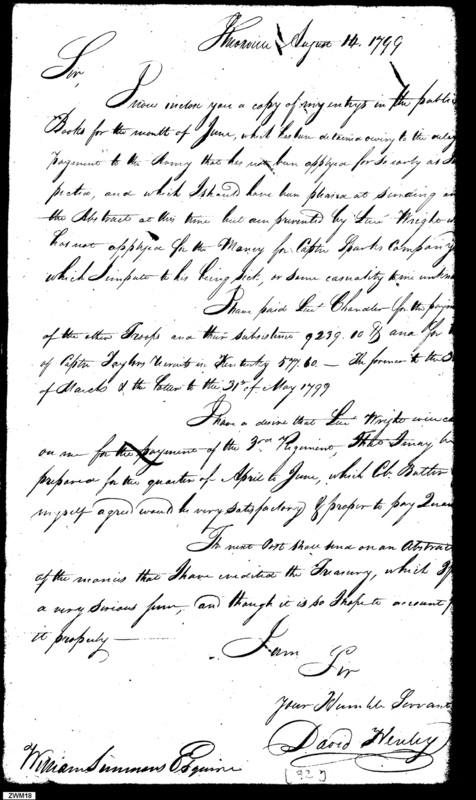 Knoxville August 14. 1799
Sir,
I now inclose you a copy of my entrys in the public
Books for the month of June, which has been detained owing to the delay
payment to the Army that has not been applyed for so early as
pected, and which I should have been pleased at sending on
the Abstract at this time but am prevented by Lieu Wright
has not applyed for the Money for Captn Sparks Company
which I impute to his being sick, or some casualty to me unknown
I have paid Lieu Chandler for the payment
of the other Troops and their subsistence 9239.10 & and for
of Captn Taylors recruits in Kentucky 577.60 — The former to the
of March & the latter to the 31st of May 1799
I have a desire that Lieu Wright
on me for the payment of the 3rd Regiment, That I may be
prepared for the quarter of April to June, which Co. Butler
myself agreed would be very satisfactory & proper to pay
The next Post shall send on an Abstract
of the monies that I have credited the Treasury, which
a very serious sum, and though it is so I hope to account
it properly —
I am
Sir
Your Humble Servant
David Henley
William Simmons Esquire
[92]
ZWM18